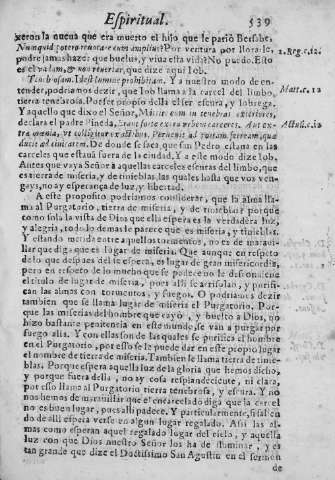 Espiritual. 539
xeron la nueva que era muerto el hijo que le pariò Bersabe.
Nunquid potero revocare eum amplius? Por ventura por llorarle,
podrè jamas hazer que buelva, y viva esta vida? No puedo. Esto
es el vadam, & non revertar, que dize aqui Iob.
2. Reg. c. 12.
Tenebrosam. Idest lumine prohibitam. Y a nuestro modo de en-
tender, podriamos dezir, que Iob llama a la carcel del limbo,
Matt. c. 22
tierra tenebrosa. Por ser propio della el ser escura, y lobrega.
Y aquello que dixo el Señor, Mitite eum in tenebras exteriores,
declara el padre Pineda,
Actuũ. c. 12
ducit ad civitatem. De donde se saca, que san Pedro estava en las
carceles que estavã fuera de la ciudad. Y a este modo dize Iob,
Antes que vaya Señor à aquellas carceles escuras del limbo, que
es tierra de miseria, y de tinieblas, las quales hasta que vos ven-
gays, no ay esperança de luz, y libertad.
A este proposito podriamos considerar, que la alma lla-
ma al Purgatorio, tierra de miseria, y de tinieblas; porque
como sola la vista de Dios que ella espera es la verdadera luz,
y alegria, todo lo demas le parece que es miseria, y tinieblas.
Y estando metida entre aquellos tormentos, no es de maravi-
llar que diga que es lugar de miseria. Que aunque en respeto
de lo que despues de se espera, es lugar de gran misericordia,
pero en respeto de lo mucho que se padece no le desconviene
el titulo de lugar de miseria, pues alli se acrisolan, y purifi-
can las almas con tormentos, y fuegos. O podriamos dezir
tambien que se llama lugar de miseria el Purgatorio. Por-
que las miserias del hombre que cayò, y buelto a Dios, no
hizo bastante penitencia en este mundo, se van a purgar por
fuego alla. Y con ellas son de las quales se purifica el hombre
en el Purgatorio, por esso se le puede dar en este propio lugar
el nombre de tierra de miseria. Tambien se llama tierra de tinie-
blas. Porque espera aquella luz de la gloria que hemos dicho,
y porque fuera della, no ay cosa resplandeciente, ni clara,
por esso llama al Purgatorio tierra tenebrosa, y escura. Y no
nos hemos de maravillar que el encarcelado diga que la carcel
no es buen lugar, pues alli padece. Y particularmente, si salien-
do de alli espera verse en algun lugar regalado. Assi las al-
mas como esperan aquel regalado lugar del cielo, y aquella
luz con que Dios nuestro Señor los ha de iluminar, y es
tan grande que dize el Doctissimo San Agustin en el sermon
de